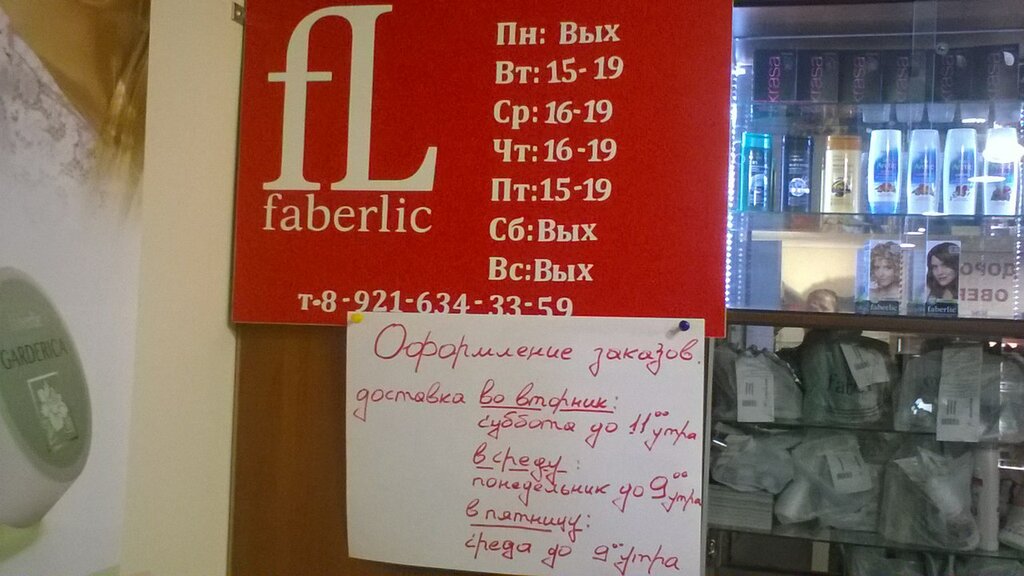 fl
faberlic
Пн: Вых
Вт: 15-19
Ср: 16-19
Чт: 16-19
Пт: 15-19
Сб: Вых
Вс: Вых
т.8-921-634-33-59
Оформление заказов.
доставка во вторник:
суббота до 11 00 утра
в среду:
понедельник до 9 00 утра
в пятницу:
среда до 9 00 утра
GARDERICA
krasa
krasa
krasa
faberlic
faberlic